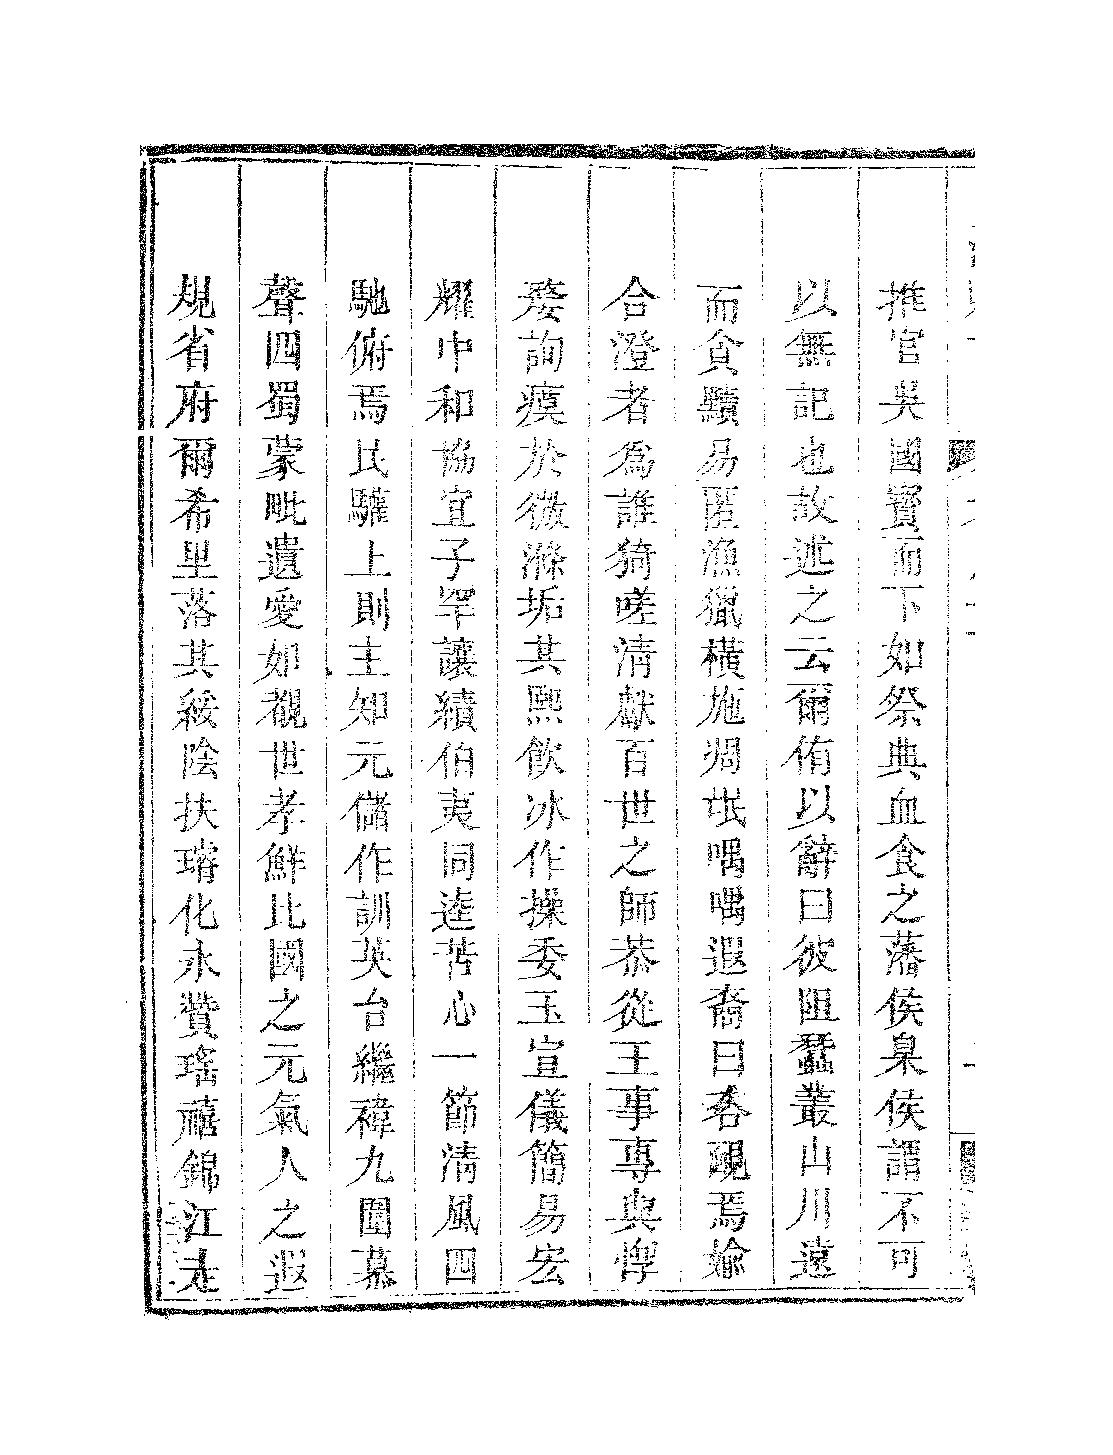 推官吳國賓而下如祭典血食之藩侯臬侯謂不可
以無記也故述之云爾侑以辭曰彼阻蠶叢山川遠
而貪黷易匿漁獵橫施凋氓喁喁遐裔曰吝覶焉媮
合澄者為誰猗嗟清獻百世之師恭從王事專與惸
嫠詢瘼於微滌垢其熙飲冰作操委玉宣儀簡易宏
耀中和協宜子罕讓績伯夷同逵苦心一節清風四
馳俯焉民驩上則主知元儲作訓英台繼禕九圍慕
聲四蜀蒙毗遺愛如覩世孝鮮比國之元氣人之遐
規省府爾希里落其綏陰扶璿化永贊瑤禧錦江走